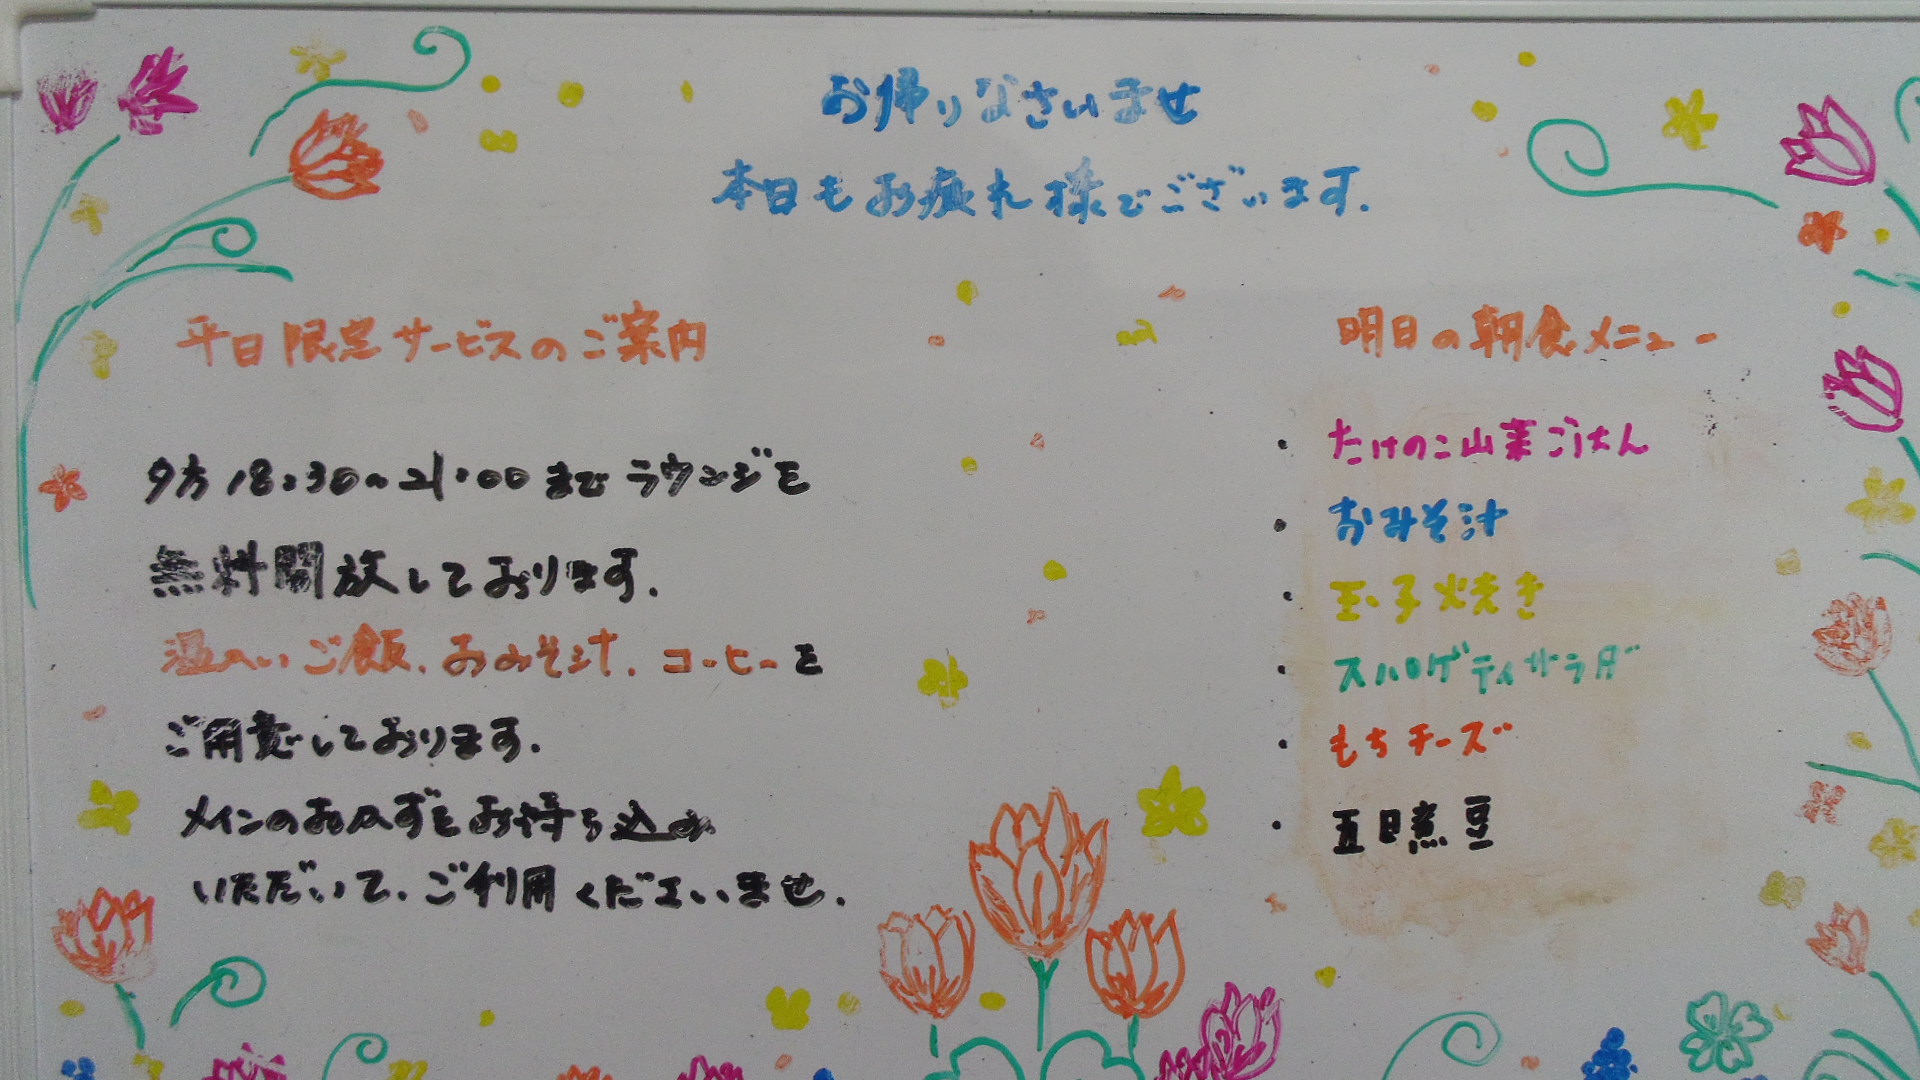 お帰りなさいませ
本日もお疲れ様でございます.
平日限定サービスのご案内
夕方18:30~21:00までラウンジを
無料開放しております.
温かいご飯.おみそ汁.コーヒーを
ご用意しております.
メインのおかずをお持ち込み
いただいて.ご利用くださいませ.
明日の朝食メニュー
・たけのこ山菜ごはん
・おみそ汁
・玉子焼き
・スパゲティサラダ
・もちチーズ
・五目煮豆